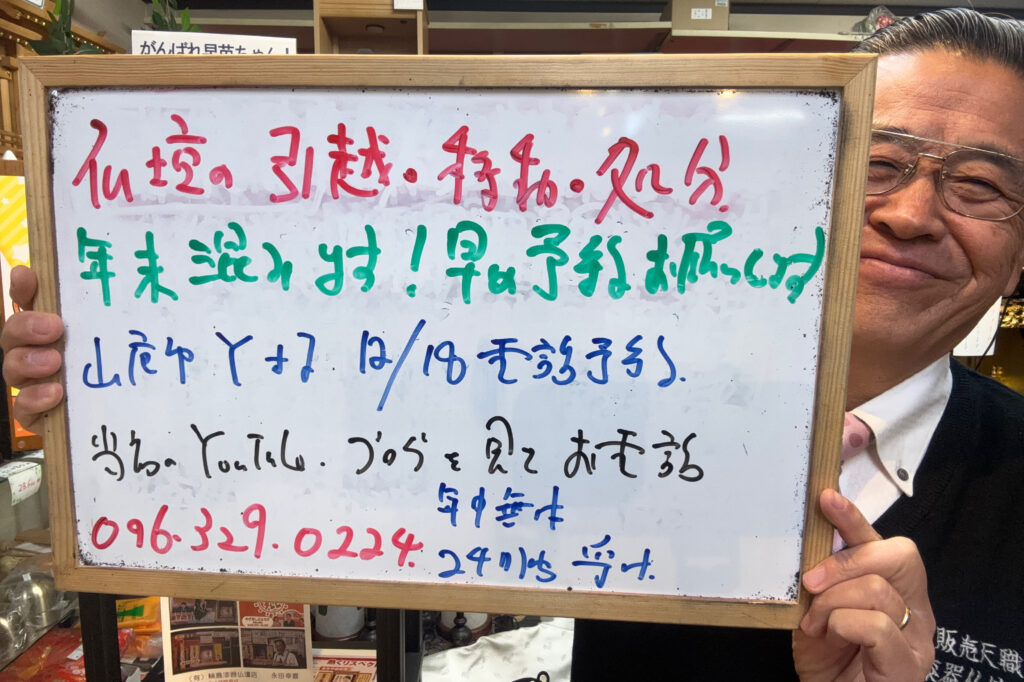 がんばれ早苗ちゃん！
仏壇の引越・移動・処分
年末混みます！早め予約お願いします
山鹿市 Y様 12/18 電話予約.
当店のYouTube・ブログを見てお電話
096.329.0224.
年中無休
24時間受付.
(有)輪島漆器仏壇店 永田幸喜
販売天職